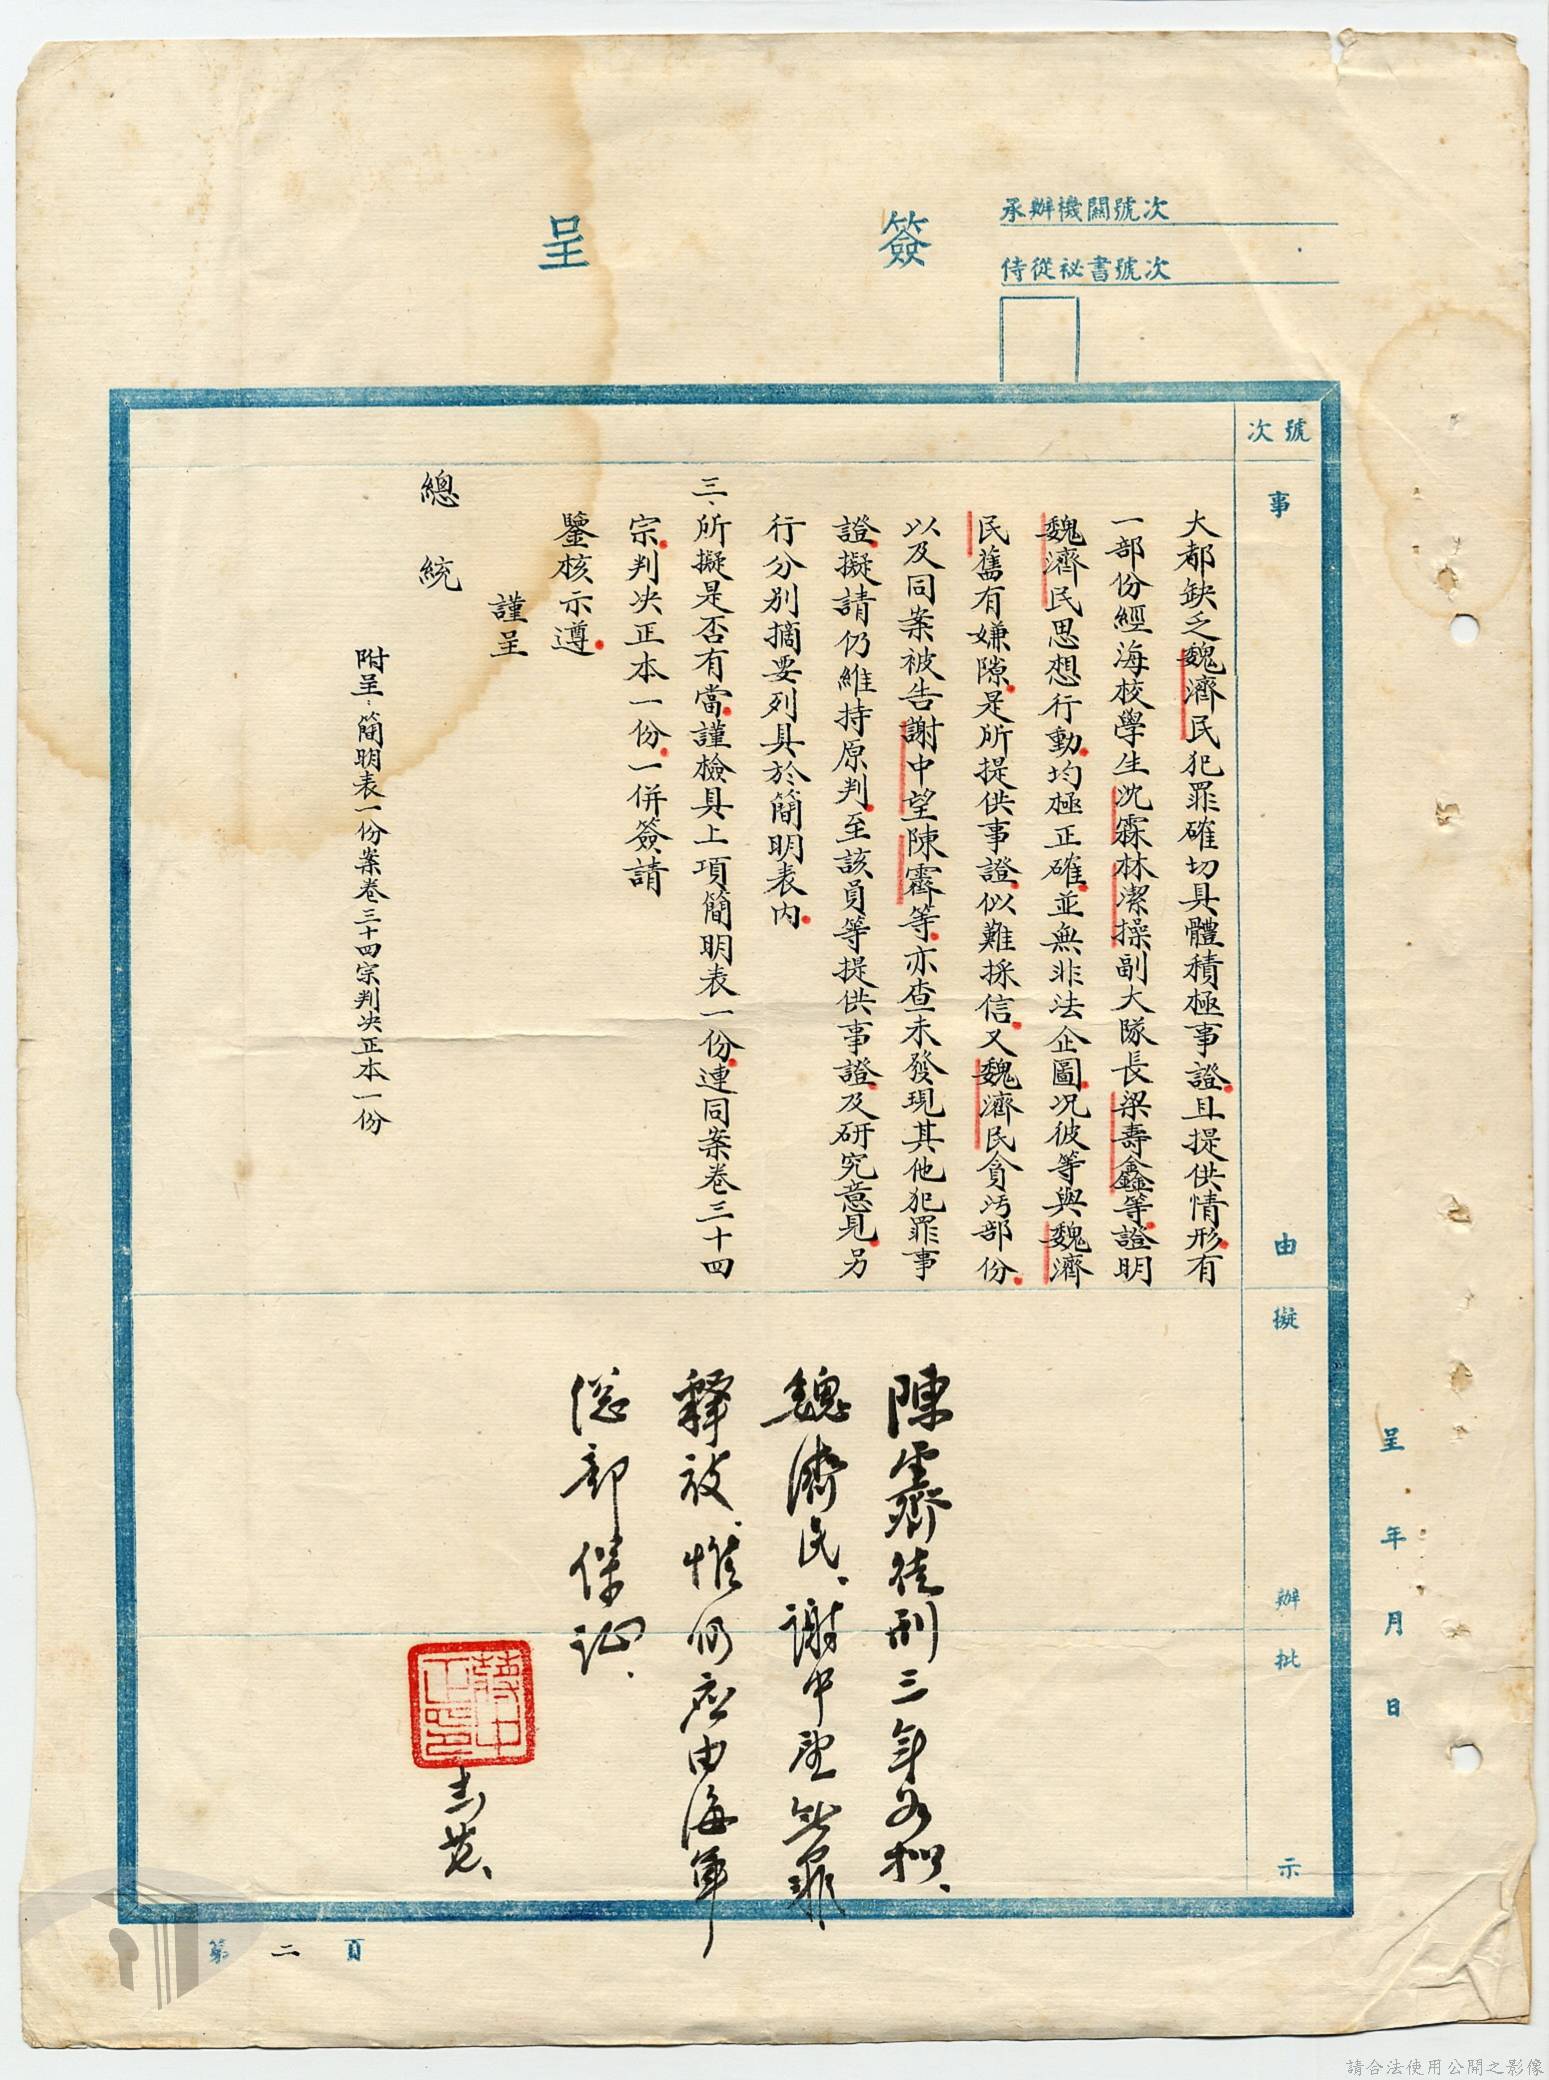 承辦機關號次
侍從祕書號次
簽呈
號次
事由
擬辦
批示
呈 年 月 日
大都缺乏魏濟民犯罪確切具體積極事證且提供情形有
一部份經海校學生沈霖林潔操副大隊長梁壽鑫等證明
魏濟民思想行動均極正確並無非法企圖況彼等與魏濟
民舊有嫌隙是所提供事證似難採信又魏濟民貪污部份
以及同案被告謝中望陳霽等亦查未發現其他犯罪事
證擬請仍維持原判至該員等提供事證及研究意見另
行分別摘要列具於簡明表內
三、所擬是否有當謹檢具上項簡明表一份連同案卷三十四
宗判決正本一份一併簽請
鑒核示遵
謹呈
總統
附呈：簡明表一份案卷三十四宗判決正本一份
陳霽徒刑三年如擬、
魏濟民、謝中望無罪
釋放、惟仍應由海軍
總部保証、
蔣中正印
第二頁
請合法使用公開之影像